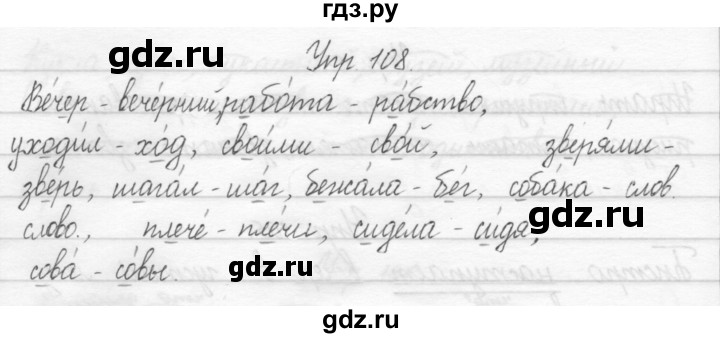 гдз.ру
gdz.ru gdz.ru
Упр 108.
Ве́чер - вече́рний, рабо́та - ра́бство,
уходи́л - хо́д, свои́ми - сво́й, зверя́ми -
зве́рь, шага́л - ша́г, бежа́ла - бе́г, соба́ка - слов.
слово., плече́ - пле́чи, сиде́ла - си́дя,
gdz.ru
сова́ - со́вы.
gdz.ru gdz.ru
gdz.ru